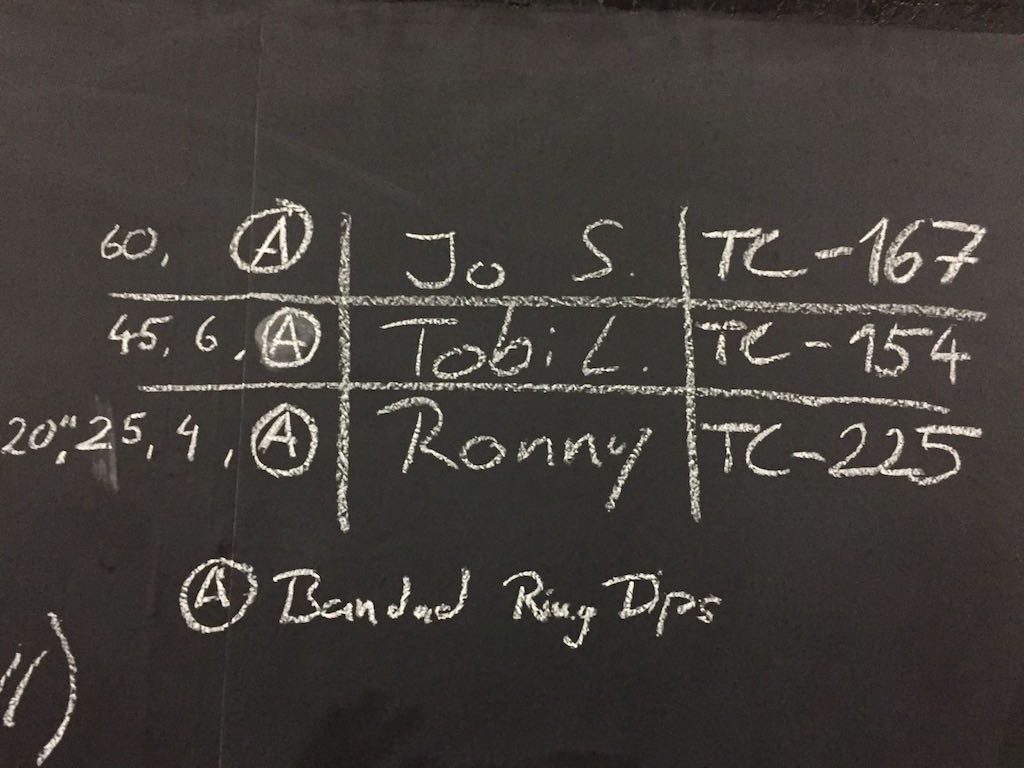 60, A Jo S. TC-167
45, 6, A Tobi L. TC-154
20", 25, 4, A Ronny TC-225
A Banded Ring Dips
")